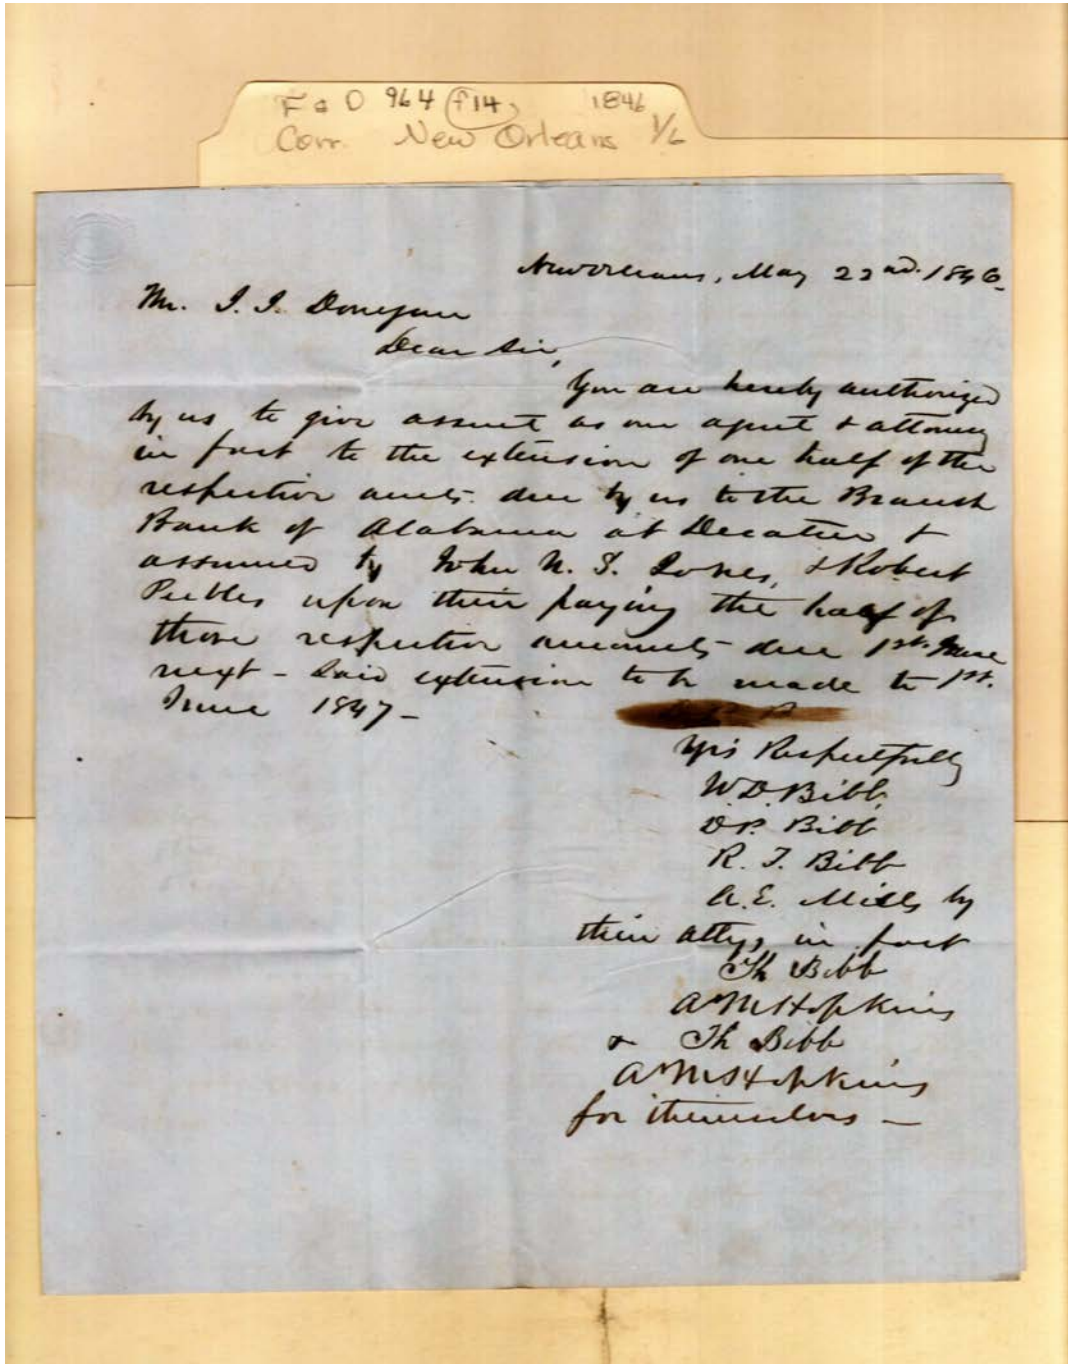 F & D 964 (f14) 1846
Corr. New Orleans 1/6
New Orleans, May 22nd. 1846.
Mr. J. J. Donegan
Dear Sir,
You are hereby authorized
by us to give assent as our agent & attorney
in fact to the extension of one half of the
respective amts. due by us to the Branch
Bank of Alabama at Decatur &
assumed by John N. S. Jones, & Robert
Peebles upon their paying the half of
those respective amounts due 1st. June
next - Said extension to be made to 1st.
June 1847 -
Yrs Respectfully
W. D. Bibb
D. P. Bibb
R. T. Bibb
A. E. Mills by
their attys in fact
Th Bibb
A M Hopkins
& Th Bibb
A M Hopkins
for themselves -